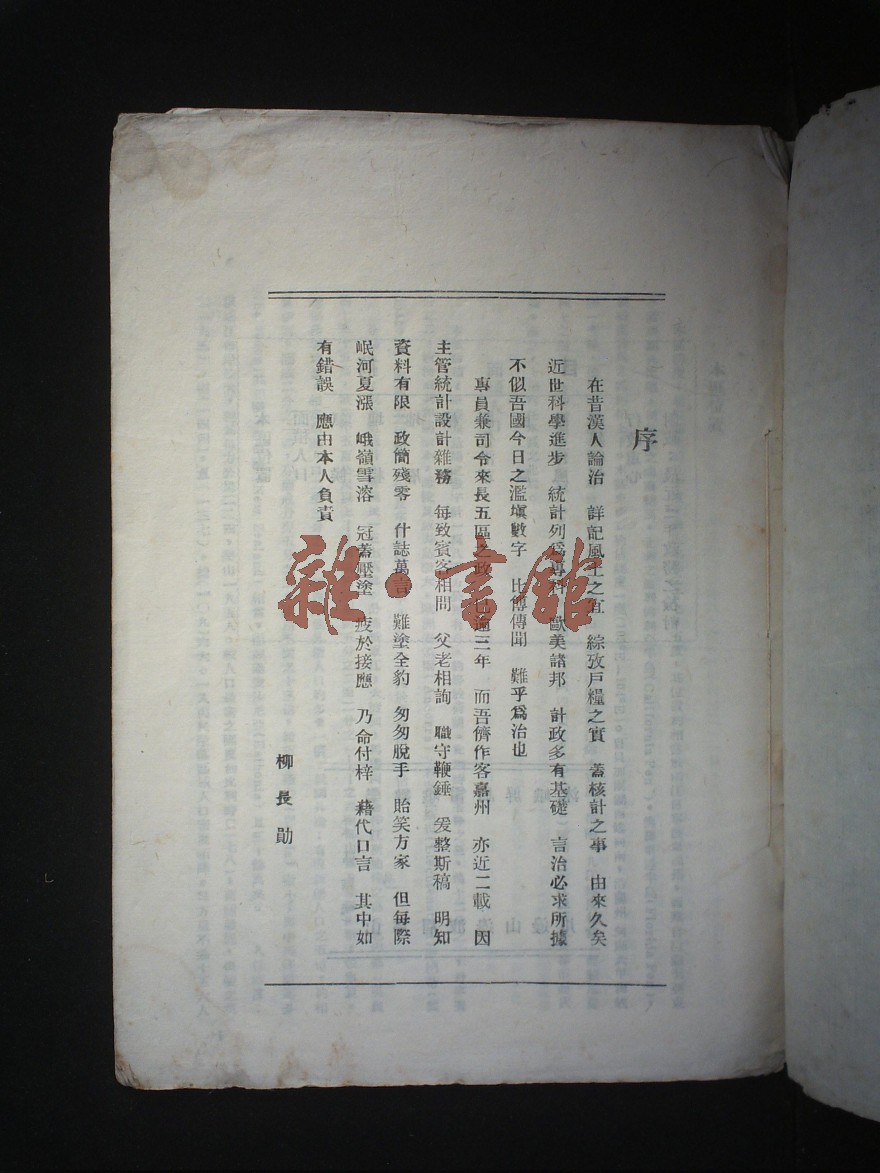 序
在昔漢人論治　詳記風土之宜　綜攷戶糧之實　蓋核計之事　由來久矣
近世科學進步　統計列爲專科　歐美諸邦　計政多有基礎　言治必求所據
不似吾國今日之濫塡數字　比傅傳聞　難乎爲治也
專員兼司令來長五區之政　已逾三年　而吾儕作客嘉州　亦近二載　因
主管統計設計雜務　每致賓客相問　父老相詢　職守鞭錘　爰整斯稿　明知
資料有限　政簡殘零　什誌萬言　難塗全豹　匆匆脫手　貽笑方家　但每際
岷河夏漲　峨嶺雪溶　冠蓋壓塗　疲於接應　乃命付梓　藉代口言　其中如
有錯誤　應由本人負責
柳長勛
雜·書館